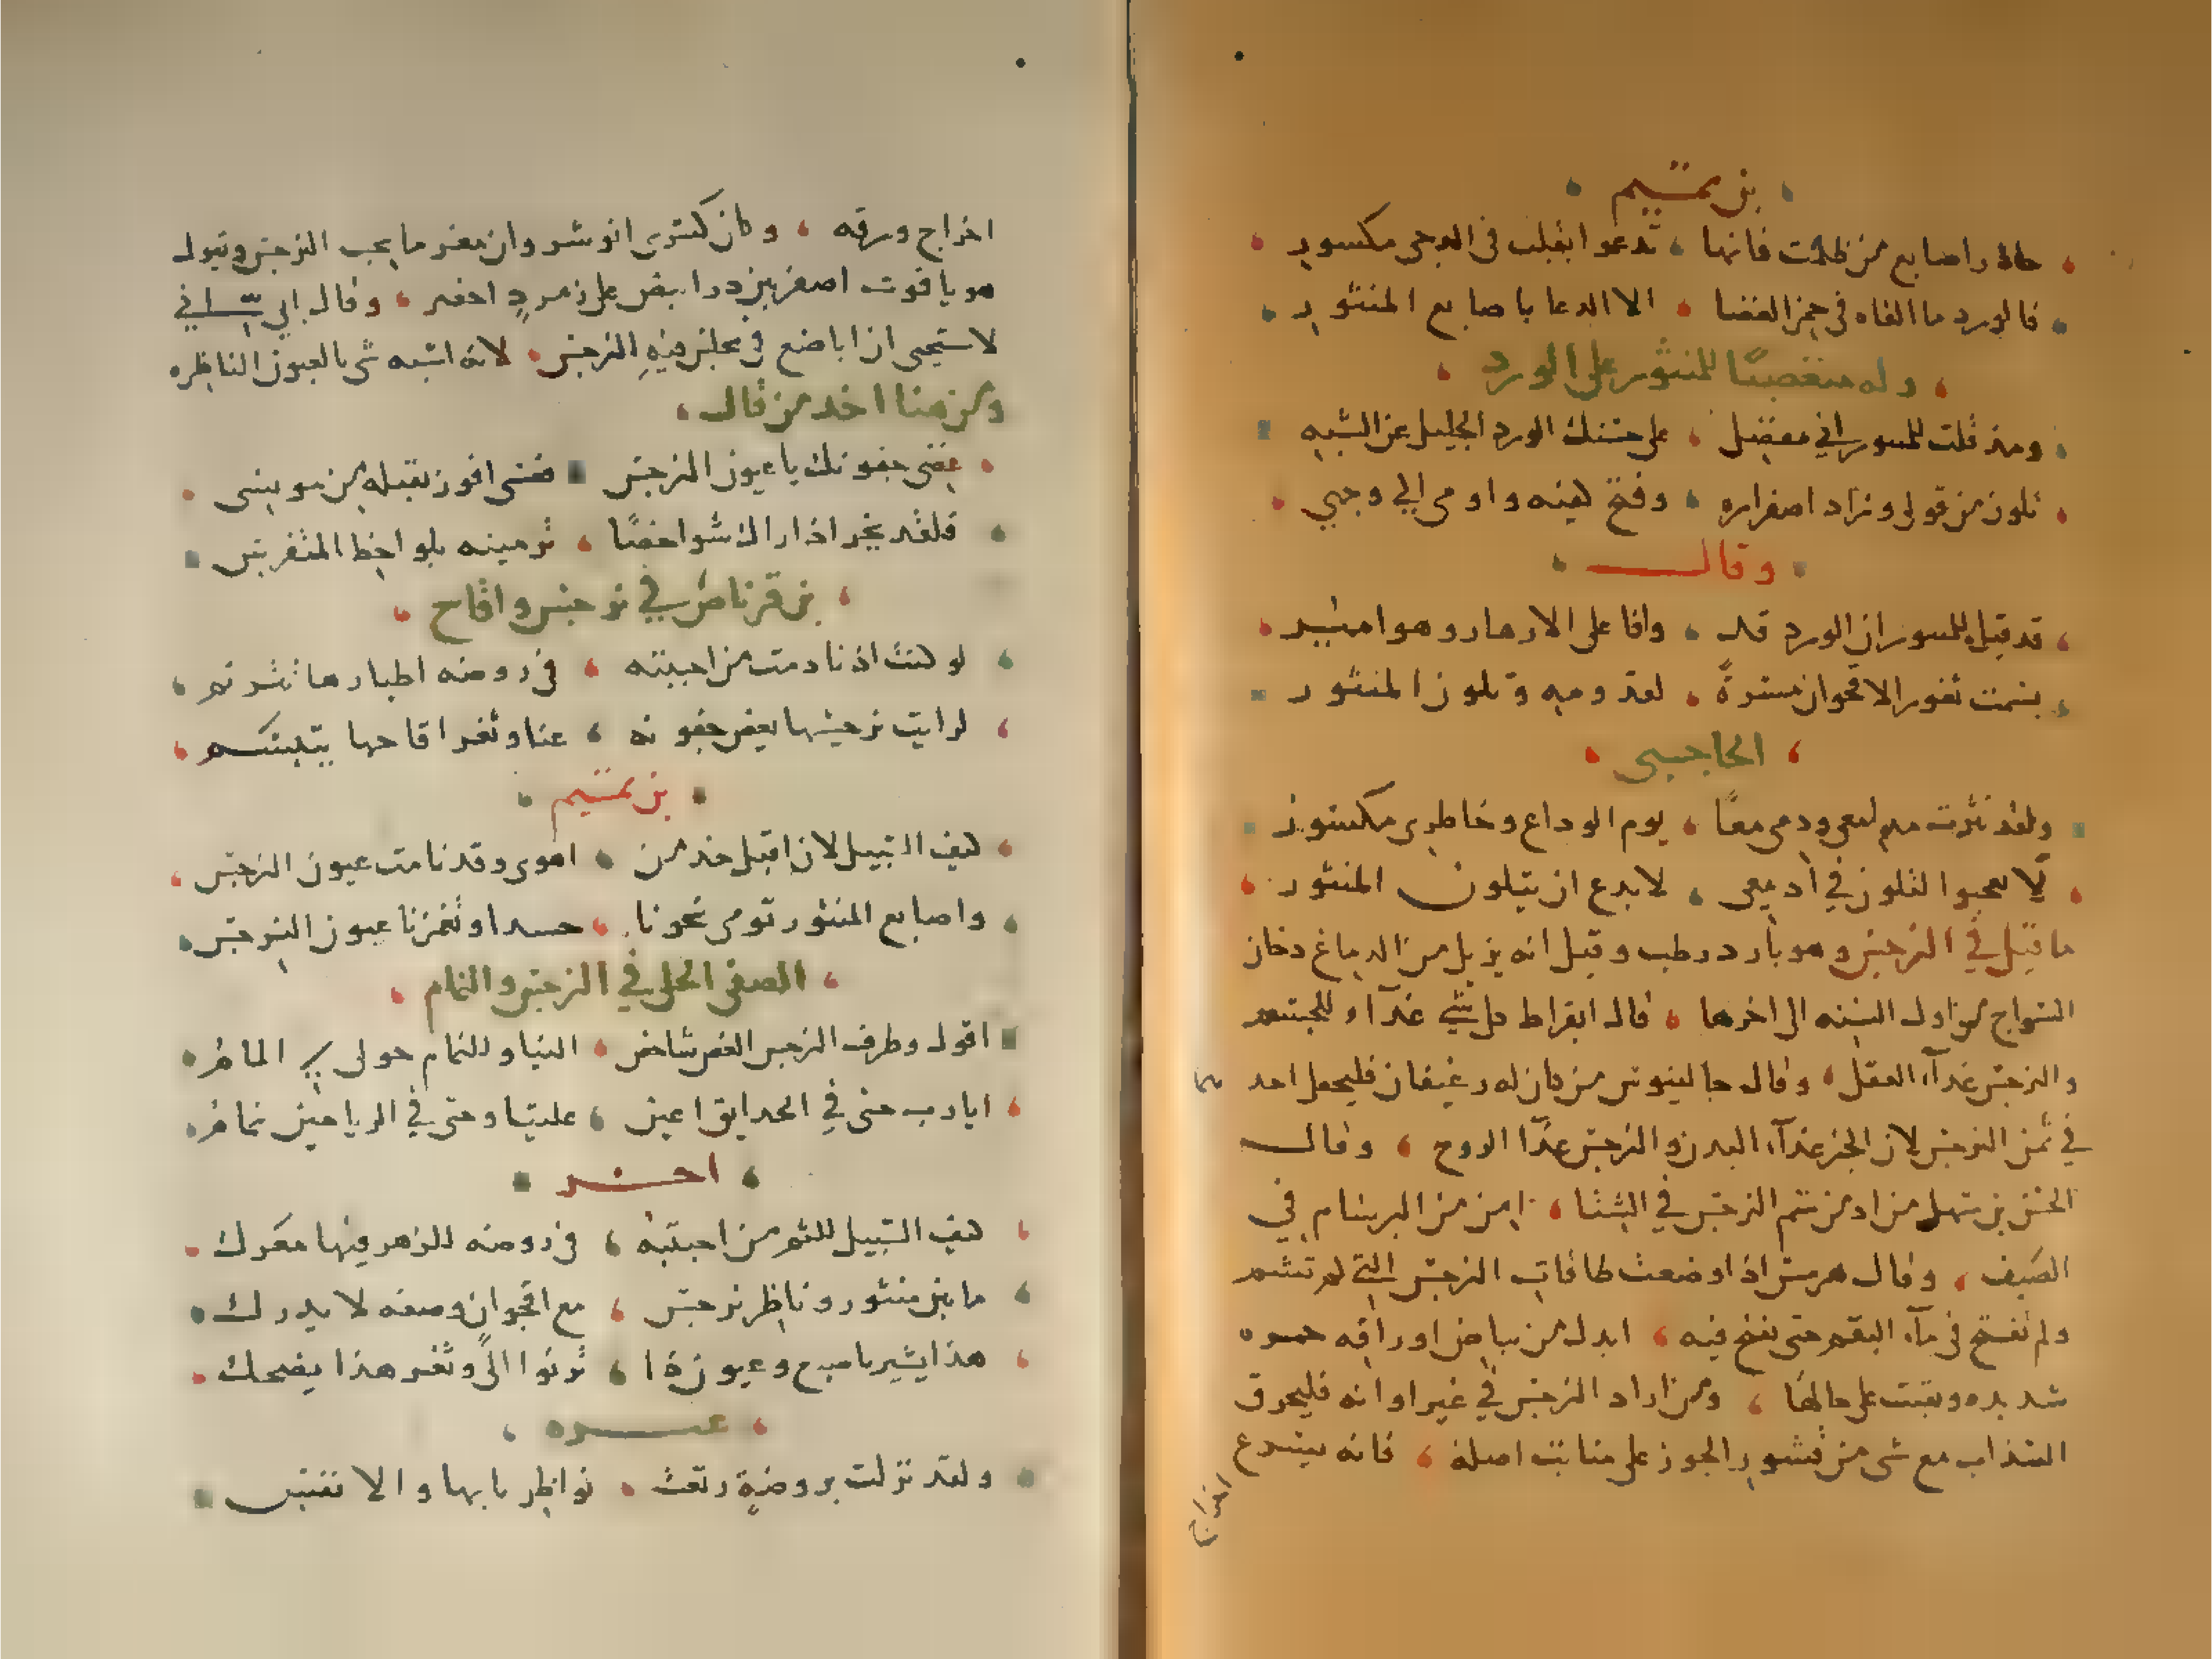 بن تميم
حاذر اصابع من ظلمت فانها ، تدعو ا بقلب في الدجى مكسور
فالورد ما القاه في جمر الغضا ، الا الدعا باصابع المنثور
وله متعصبًا للمنثور على الورد
ومذ قلت للمنثور اني مفضل ، على حسنك الورد الجليل عن الشبه
تلون من قولي وزاد اصفراره ، وفتح كفيه واومى الى وجهي
وقال
قد قيل للمنثور ان الورد قد ، وافا على الازهار وهو امير
بسمت ثغور الاقحوان مسرةً ، لقدومه وتلون المنثور
الحاجبي
ولقد نثرت مدامعي ودمي معًا ، يوم الوداع وخاطري مكسور
لا تعجبوا لتلون في ادمعي ، لا بدع ان يتلون المنثور
ما قيل في النرجس وهو بارد رطب وقيل انه يزيل من الدماغ دخان
السراج من اول السنه الى اخرها ، قال ابقراط كل شي غذاء للجسم
والنرجس غذآء العقل ، وقال جالينوس من كان له رغيفان فليجعل احدهما
في ثمن النرجس لان الخبز غذآء البدن والنرجس غذا الروح ، وقال
الحسن بن سهل من ادمن شم النرجس في الشتا ، امن من البرسام في
الصيف ، وقال هرمس اذا وضعت طاقات النرجس التي لم تشم
ولم تفتح في مآء البقم حتى تفتح فيه ، ابدل من بياض اوراقه حمره
شديده وبقيت على حالها ، ومن اراد النرجس في غير اوانه فليحرق
السذاب مع شي من قشور الجوز على منابت اصله ، فانه يسرع
اخراج
اخراج ورقه ، وكان كسرى انوشروان مغرما بحب النرجس ويقول
هو ياقوت اصفر بين در ابيض على زمرد اخضر ، وقال
لاستحيى ان اباضع في مجلس فيه النرجس ، لانه اشبه شي بالعيون الناظره
ومن هنا اخد من قال
غضي جفونك يا عيون النرجس ، فعسى افوز بقبلة من مونسي
فلقد تحير اذ راك شواخصًا ، ترمينه بلواحظ المتفرس
بن قرناص في نرجس واقاح
لو كنت اذ نادمت من احببته ، في روضه اطيارها تترنم
لرايت نرجسها يغض جفونه ، عنا وثغر اقاحها يتبسم
بن تميم
كيف السبيل لان اقبل خد من ، اهوى وقد نامت عيون النرجس
واصابع المنثور تومي نحونا ، حسدا وتغمزنا عيون النرجس
الصفي الحلي في النرجس والنمام
اقول وطرف النرجس الغض شاخص ، الينا وللنمام حولي المام
ايا رب حتى في الحدايق اعين ، علينا وحتى في الرياحين نمام
اخر
كيف السبيل للثم من احببته ، في روضه للزهر فيها معرك
ما بين منثور وناظر نرجس ، مع اقحوان وصفه لا يدرك
هذا يشير باصبع وعيون ذا ، ترنوا اليَّ وثغر هذا يضحك
غيره
ولقد نزلت بروضةٍ رتعت ، نواظرنا بها والانفس